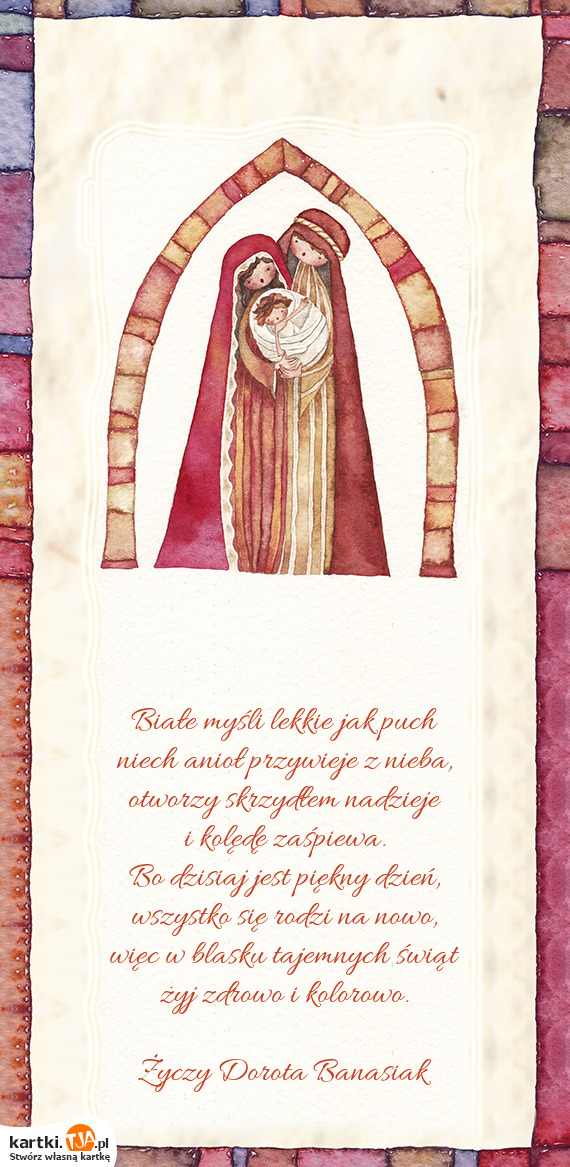 Białe myśli lekkie jak puch
niech anioł przywieje z nieba,
otworzy skrzydłem nadzieje
i kolędę zaśpiewa.
Bo dzisiaj jest piękny dzień,
wszystko się rodzi na nowo,
więc w blasku tajemnych świąt
żyj zdrowo i kolorowo.
Życzy Dorota Banasiak
kartki.TJA.pl
Stwórz własną kartkę